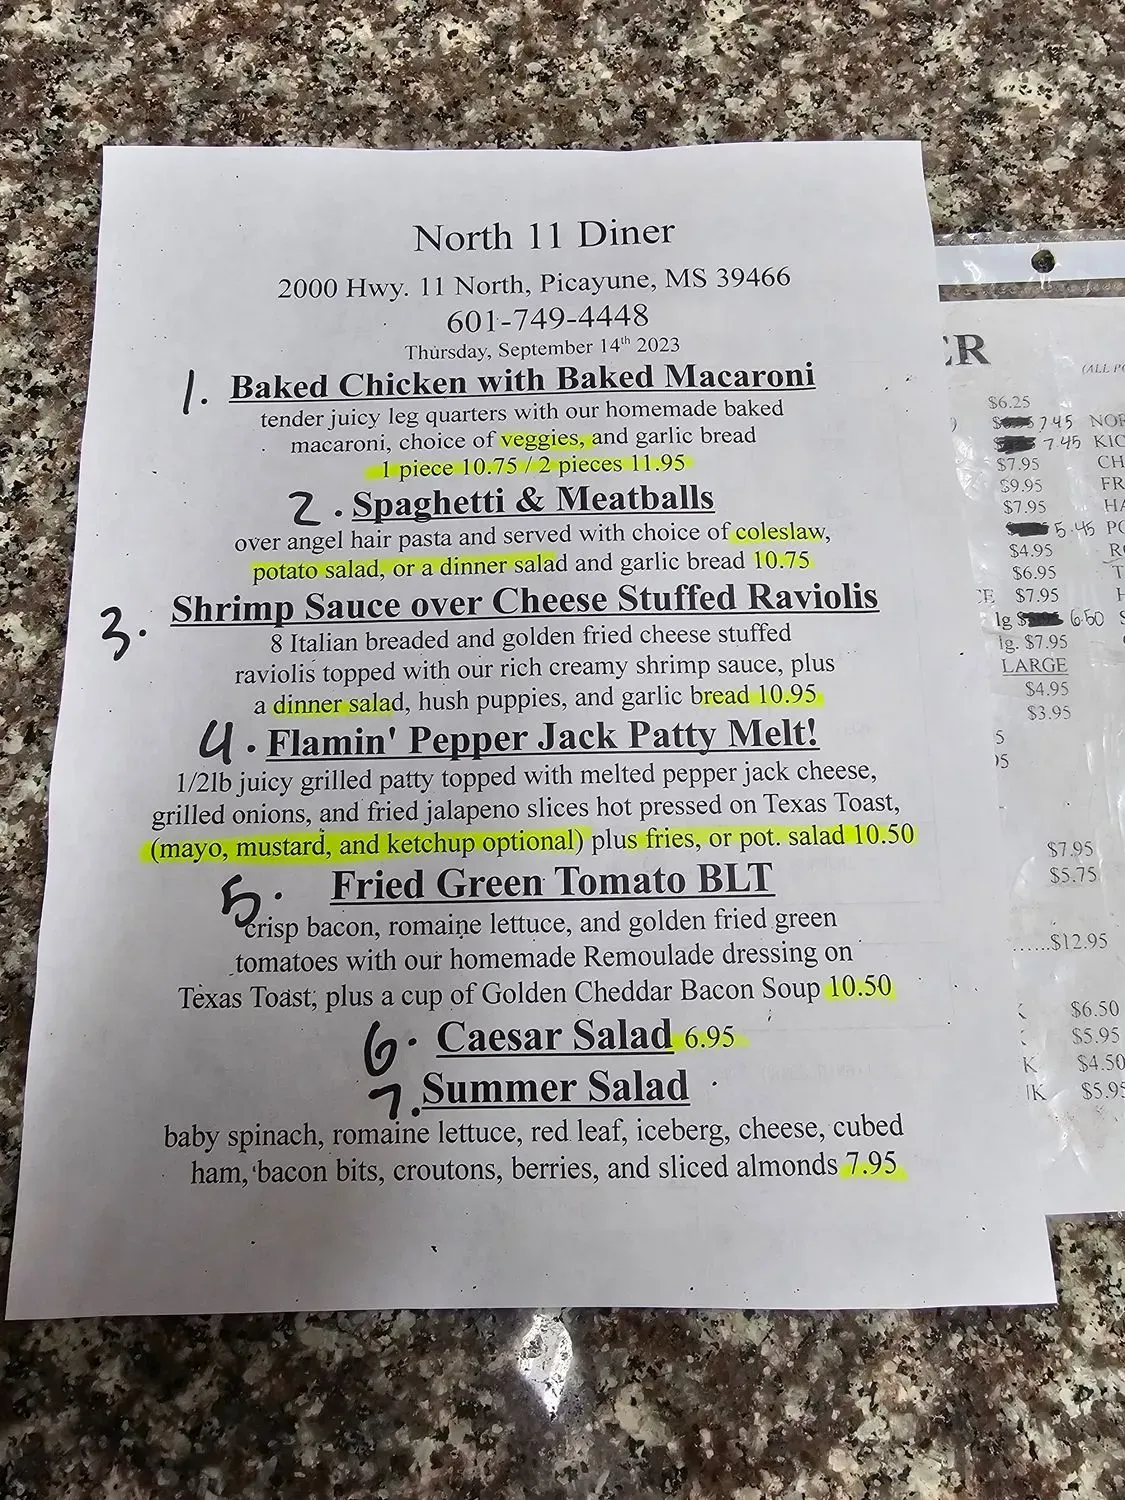 North 11 Diner
2000 Hwy. 11 North, Picayune, MS 39466
601-749-4448
Thursday, September 14th 2023
1. Baked Chicken with Baked Macaroni
tender juicy leg quarters with our homemade baked
macaroni, choice of veggies, and garlic bread
1 piece 10.75 / 2 pieces 11.95
2. Spaghetti & Meatballs
over angel hair pasta and served with choice of coleslaw,
potato salad, or a dinner salad and garlic bread 10.75
3. Shrimp Sauce over Cheese Stuffed Raviolis
8 Italian breaded and golden fried cheese stuffed
raviolis topped with our rich creamy shrimp sauce, plus
a dinner salad, hush puppies, and garlic bread 10.95
4. Flamin' Pepper Jack Patty Melt!
1/2lb juicy grilled patty topped with melted pepper jack cheese,
grilled onions, and fried jalapeno slices hot pressed on Texas Toast,
(mayo, mustard, and ketchup optional) plus fries, or pot. salad 10.50
5. Fried Green Tomato BLT
crisp bacon, romaine lettuce, and golden fried green
tomatoes with our homemade Remoulade dressing on
Texas Toast, plus a cup of Golden Cheddar Bacon Soup 10.50
6. Caesar Salad 6.95
7. Summer Salad
baby spinach, romaine lettuce, red leaf, iceberg, cheese, cubed
ham, bacon bits, croutons, berries, and sliced almonds 7.95
ER
(ALL
$6.25
7.45 NOR
7.45 KIC
$7.95 CH
$9.95 FR
$7.95 HA
5.45 PO
$4.95
$6.95 T
$7.95 H
lg 6.50
lg. $7.95
LARGE
$4.95
$3.95
$7.95
$5.75
......$12.95
$6.50
$5.95
K $4.50
$5.95